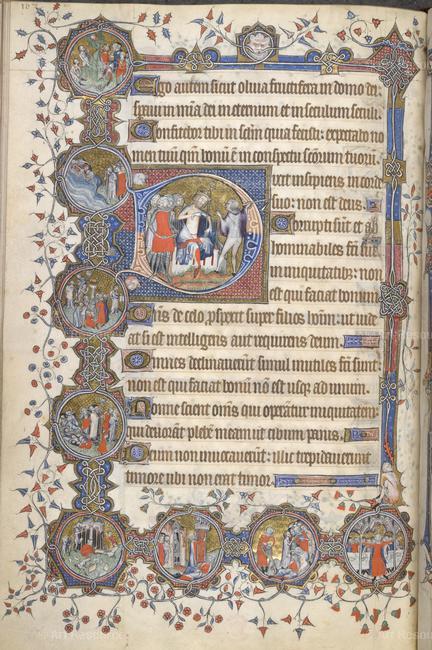 Ego autem sicut oliua fructifera in domo dei
in mīa dei in eternum et in seculum seculi
Confitebor tibi in sclm quia fecisti: et expectabo no
men tuū qm̄ bonū ē in conspectu scōrum tuorū.
Dixit insipiens in corde
suo: non est deus.
Corrupti sūt et ab
hominabiles fcī sūt
in iniquitatibꝫ: non
est qui faciat bonum
Deus de celo ꝓspexit super filios hoīm: ut uide
at si est intelligens aut requirens deum.
Omnes declinauerūt simul inutiles fcī sunt:
non est qui faciat bonū nō est usqꝫ ad unum.
Nonne scient om̄s qui operātur iniquitatem:
qui deuorāt plebē meam ut cibum panis.
Deum non inuocauerūt: illic trepidauerunt
timore ubi non erat timor.
Art Resource